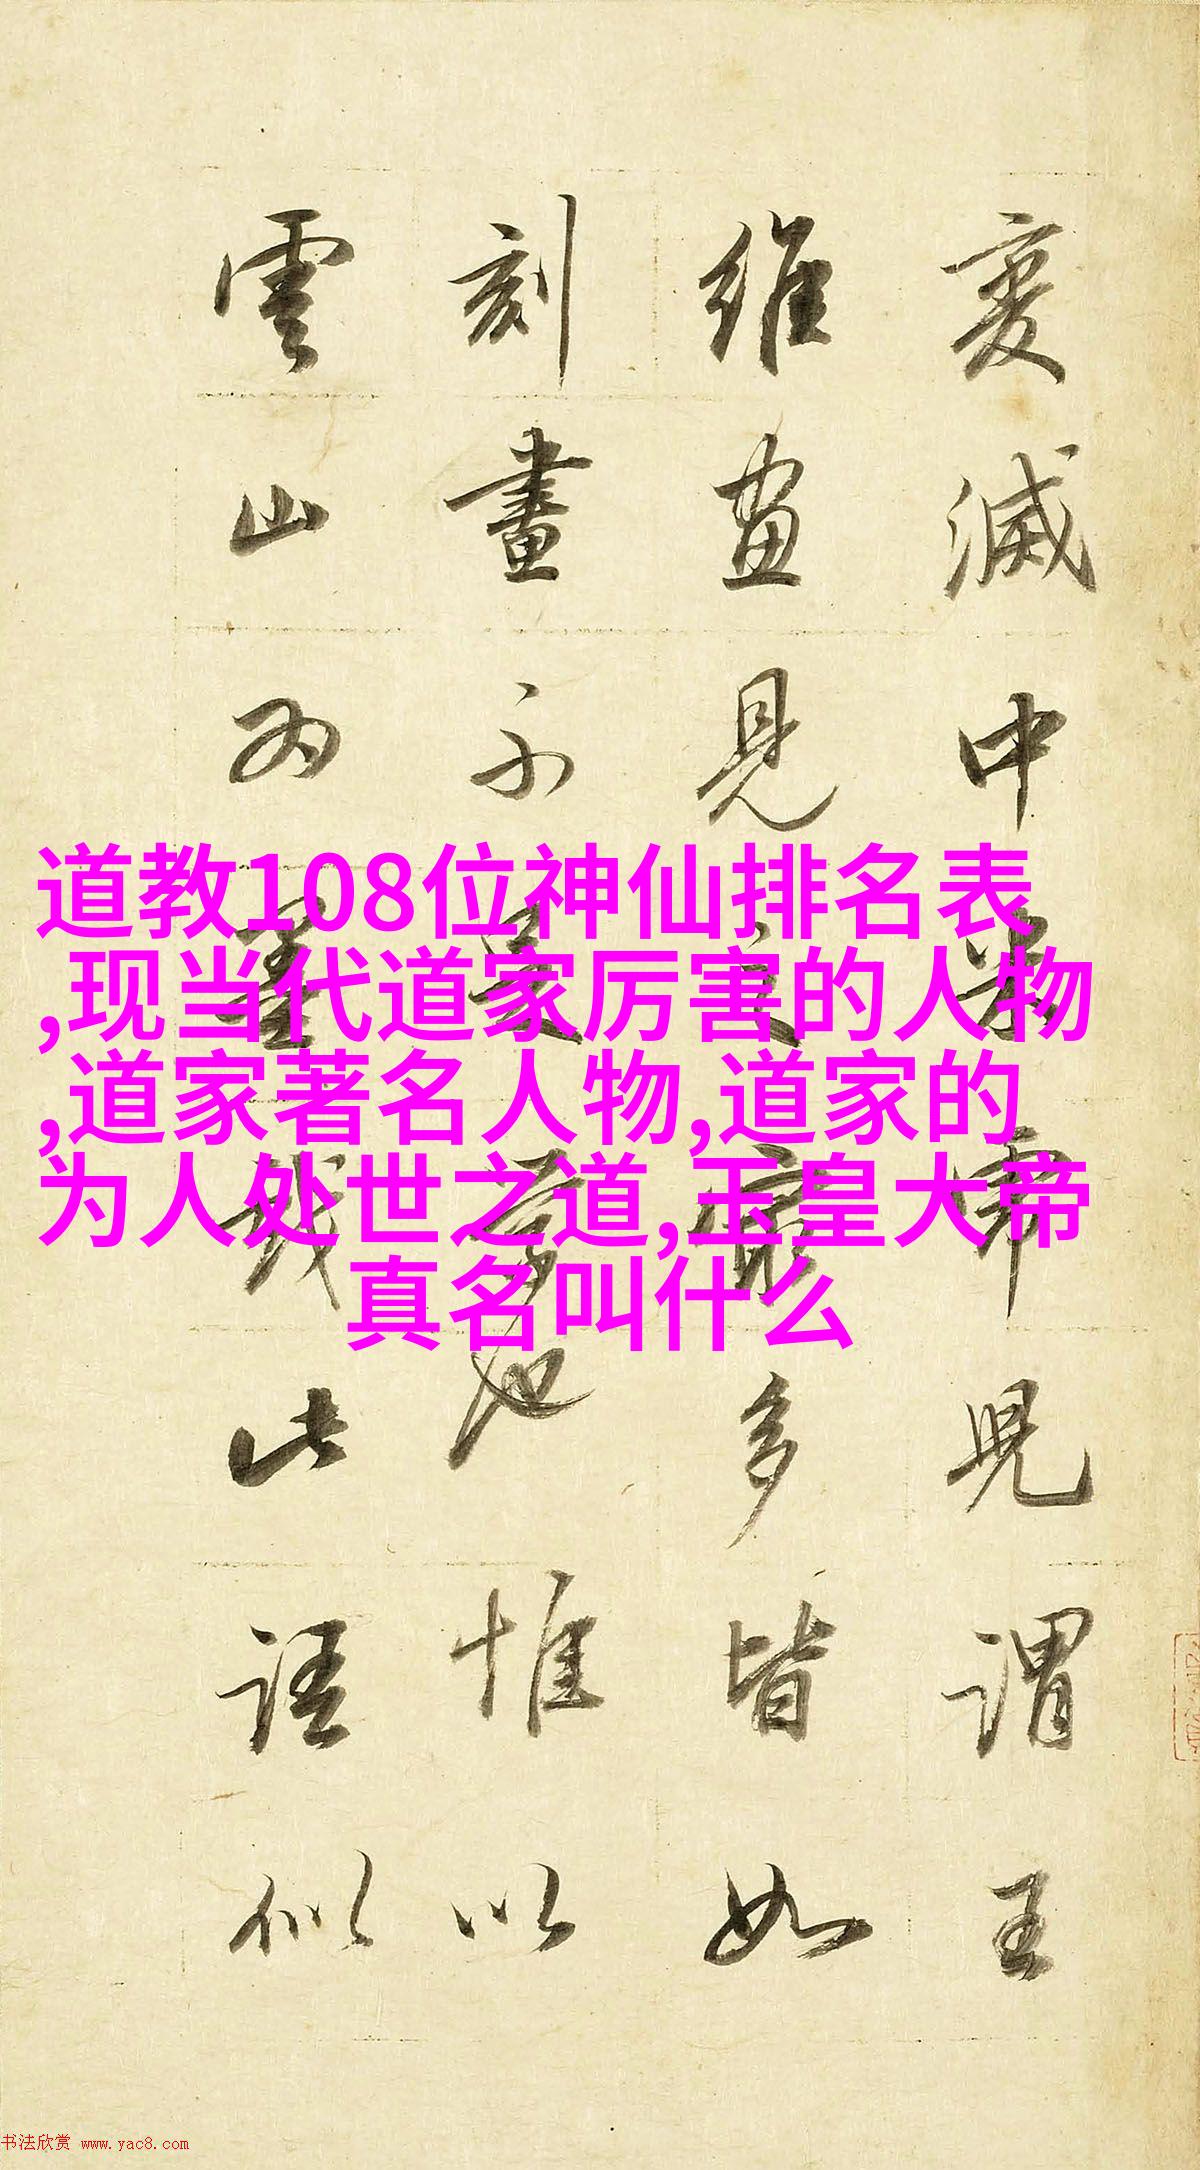 變滅中米虎兒謂王
維畫見之最多皆如
刻畫不足學也惟以
雲山為墨戲此語似
道教108位神仙排名表
,现当代道家厉害的人物
,道家著名人物,道家的
为人处世之道,玉皇大帝
真名叫什么
书法欣赏 www.yac8.com